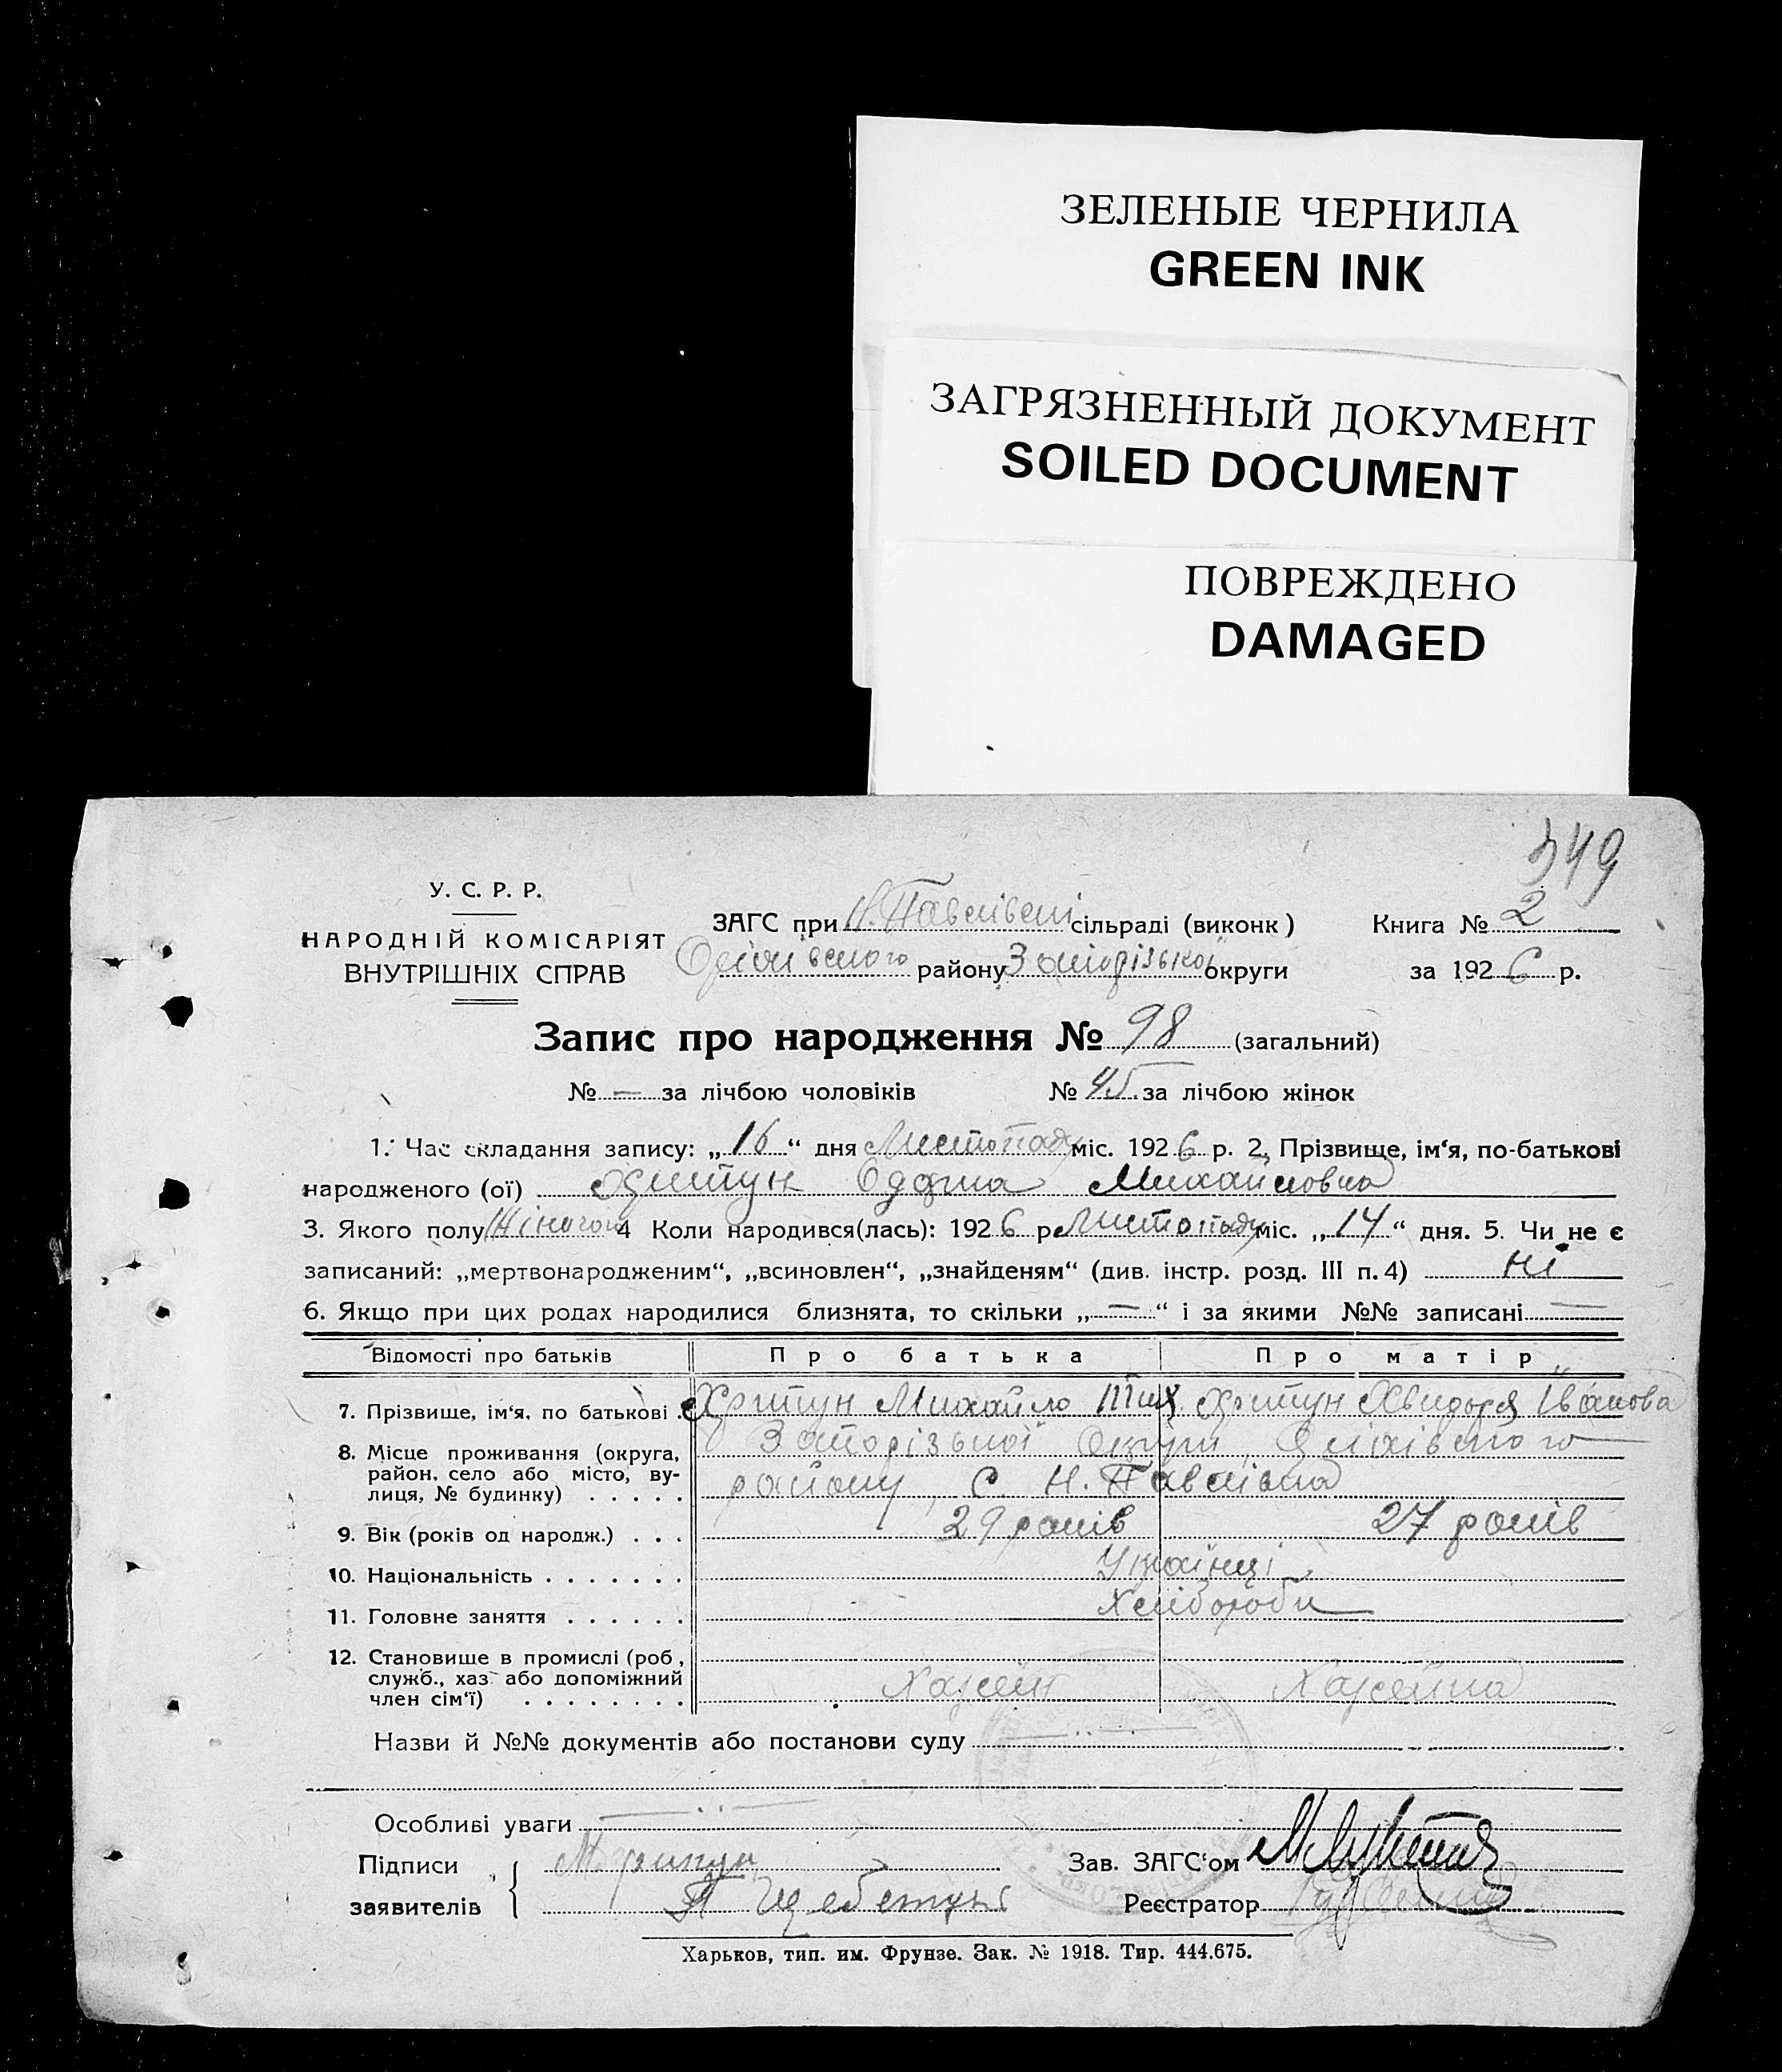 ЗЕЛЕНЫЕ ЧЕРНИЛА
GREEN INK
ЗАГРЯЗНЕННЫЙ ДОКУМЕНТ
SOILED DOCUMENT
ПОВРЕЖДЕНО
DAMAGED
349
У. С. Р. Р.
НАРОДНІЙ КОМІСАРІЯТ
ВНУТРІШНІХ СПРАВ
ЗАГС при Н. Павлівські сільраді (виконк) Книга № 2
Оріхівського району Запорізької округи за 1926 р.
Запис про народження № 98 (загальний)
№ — за лічбою чоловіків № 45. за лічбою жінок
1. Час складання запису: „16“ дня Листопаду міс. 1926 р. 2. Прізвище, ім‘я, по-батькові
народженого (ої) Михайловна
3. Якого полу Жіночого 4 Коли народився(лась): 1926 р Листопаду міс. „14“ дня. 5. Чи не є
записаний: „мертвонародженим“, „всиновлен“, „знайденям“ (див. інстр. розд. III п. 4) ні
6. Якщо при цих родах народилися близнята, то скільки „—“ і за якими №№ записані —
Відомості про батьків Про батька Про матір
7. Прізвище, ім‘я, по батькові Михайло Іванова
8. Місце проживання (округа, район, село або місто, вулиця, № будинку) Запорізької Округи Оріхівського
району, с. Н. Павлівка
9. Вік (років од народж.) 29 років 27 років
10. Національність Українці
11. Головне заняття Хлібороби
12. Становище в промислі (роб, служб., хаз або допоміжний член сім‘ї) Хазяїн Хазяйка
Назви й №№ документів або постанови суду
Особливі уваги
Підписи
заявителів
Зав. ЗАГС‘ом
Реєстратор
Харьков, тип. им. Фрунзе. Зак. № 1918. Тир. 444.675.